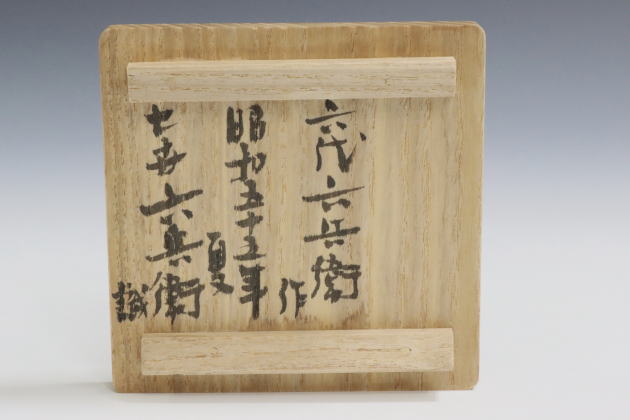 六代六兵衛
作
昭和五十五年
夏
七世六兵衛
識